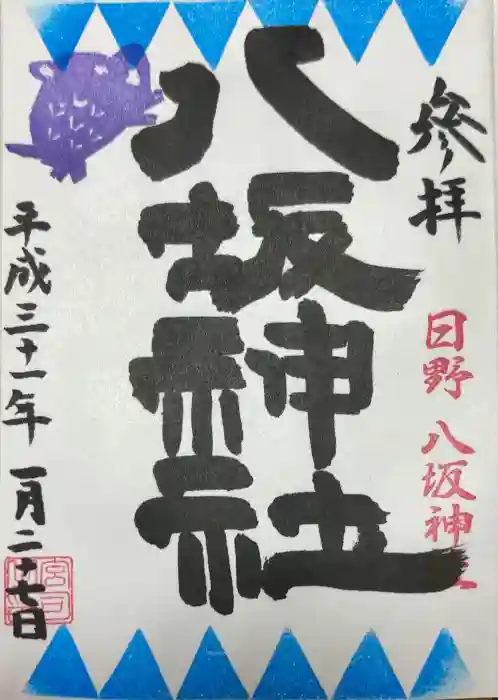 參拝
日野八坂神社
八坂神社
平成三十一年一月二十七日